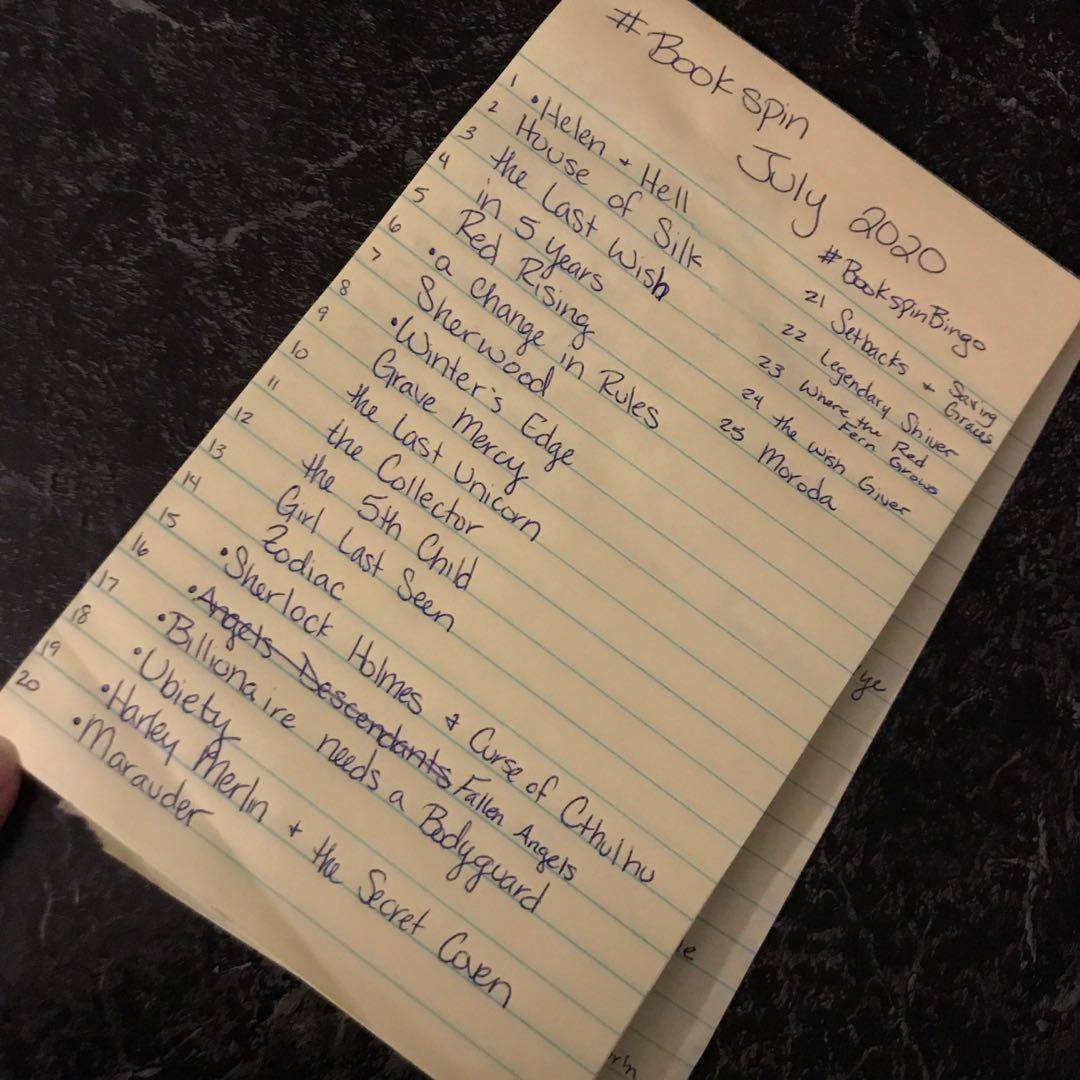 #Bookspin
July 2020
1 •Helen + Hell
2 House of Silk
3 the Last Wish
4 in 5 years
5 Red Rising
6 •a change in Rules
7 Sherwood
8 •Winter's Edge
9 Grave Mercy
10 the Last Unicorn
11 the Collector
12 the 5th Child
13 Girl Last Seen
14 Zodiac
15 •Sherlock Holmes & Curse of Cthulhu
16 •Angels Descendants Fallen Angels
17 •Billionaire needs a Bodyguard
18 •Ubiety
19 •Harley Merlin + the Secret Coven
20 •Marauder
#BookspinBingo
21 Setbacks + Saving
Graces
22 Legendary Shiver
23 Where the Red
Fern Grows
24 the wish Giver
25 Moroda